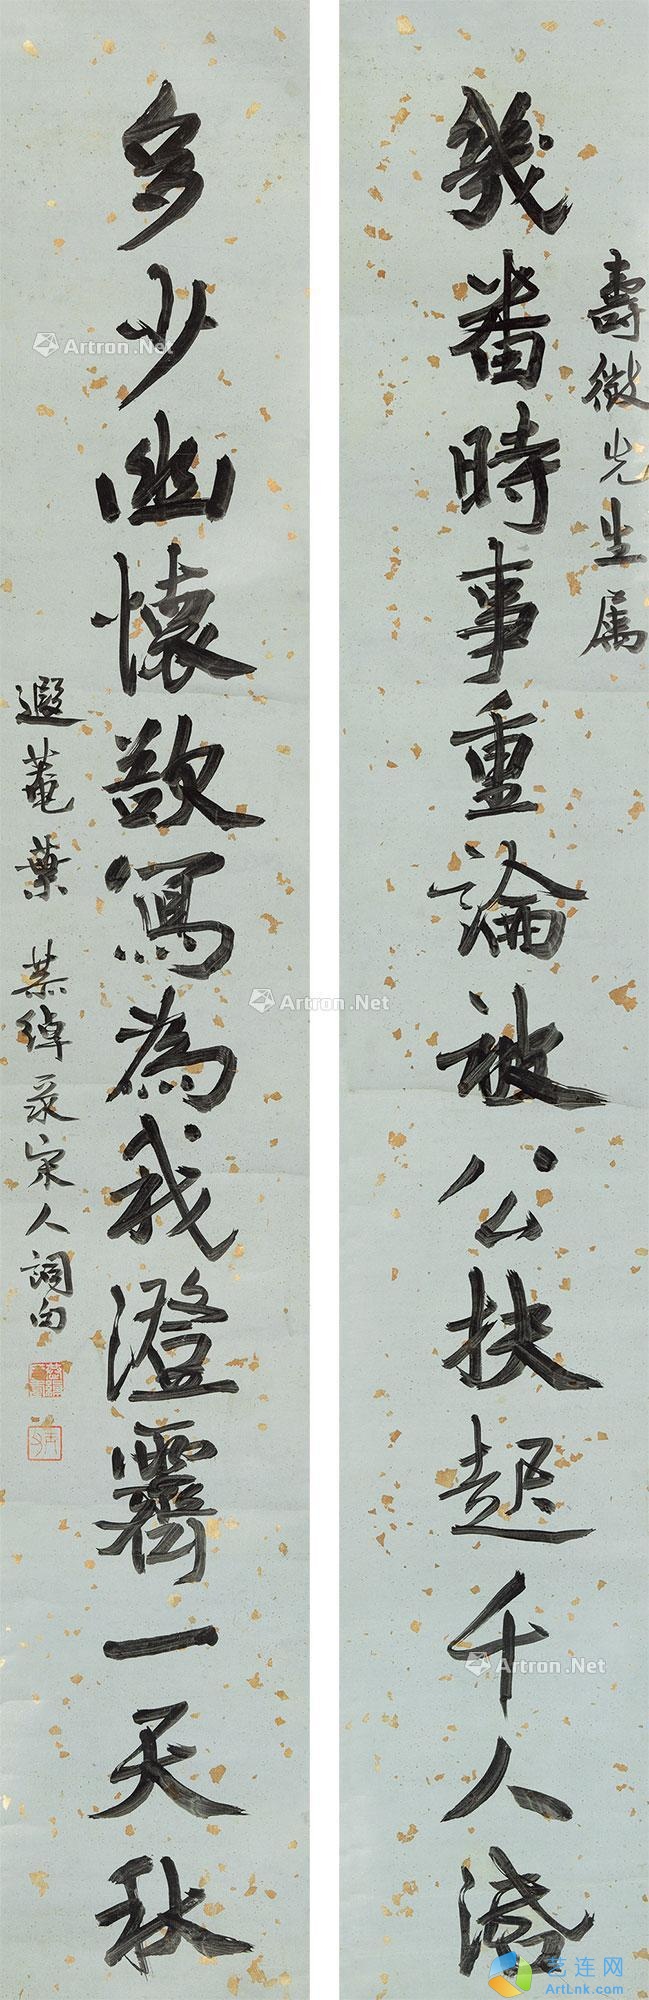 壽徵先生属
幾番時事重論被公扶起千人
多少幽懷欲寫為我澄霽一天秋
遐菴葉恭綽宋人詞句
Artron.Net
Artron.Net
Artron.Net
Artron.Net
艺连网
ArtLnk.com